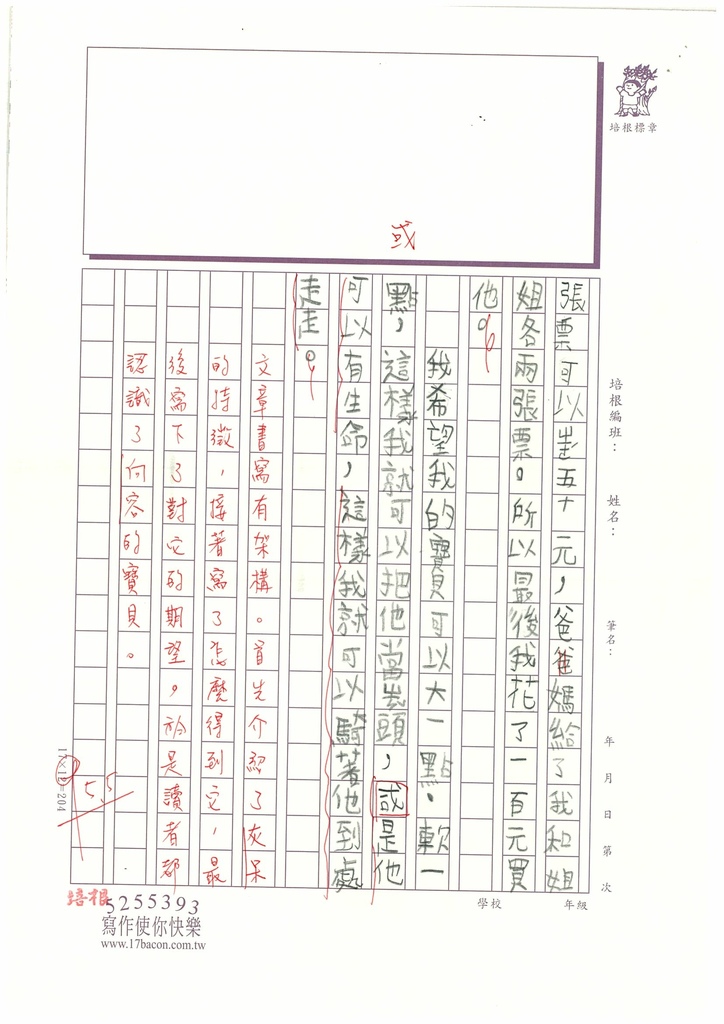 培根標章
或
培根編班：
姓名：
筆名：
年月日第次
學校
年級
張票可以出五十元，爸爸媽給了我和姐
姐各兩張票。所以最後我花了一百元買
他。
我希望我的寶貝可以大一點、軟一
點，這樣我就可以把他當枕頭，或是他
可以有生命，這樣我就可以騎著他到處
走走。
文章書寫有架構。首先介紹了灰呆
的特徵，接著寫了怎麼得到它，最
後寫下了對它的期望，於是讀者都
認識了向容的寶貝。
5.5
17×12=204
培根
5255393
寫作使你快樂
www.17bacon.com.tw